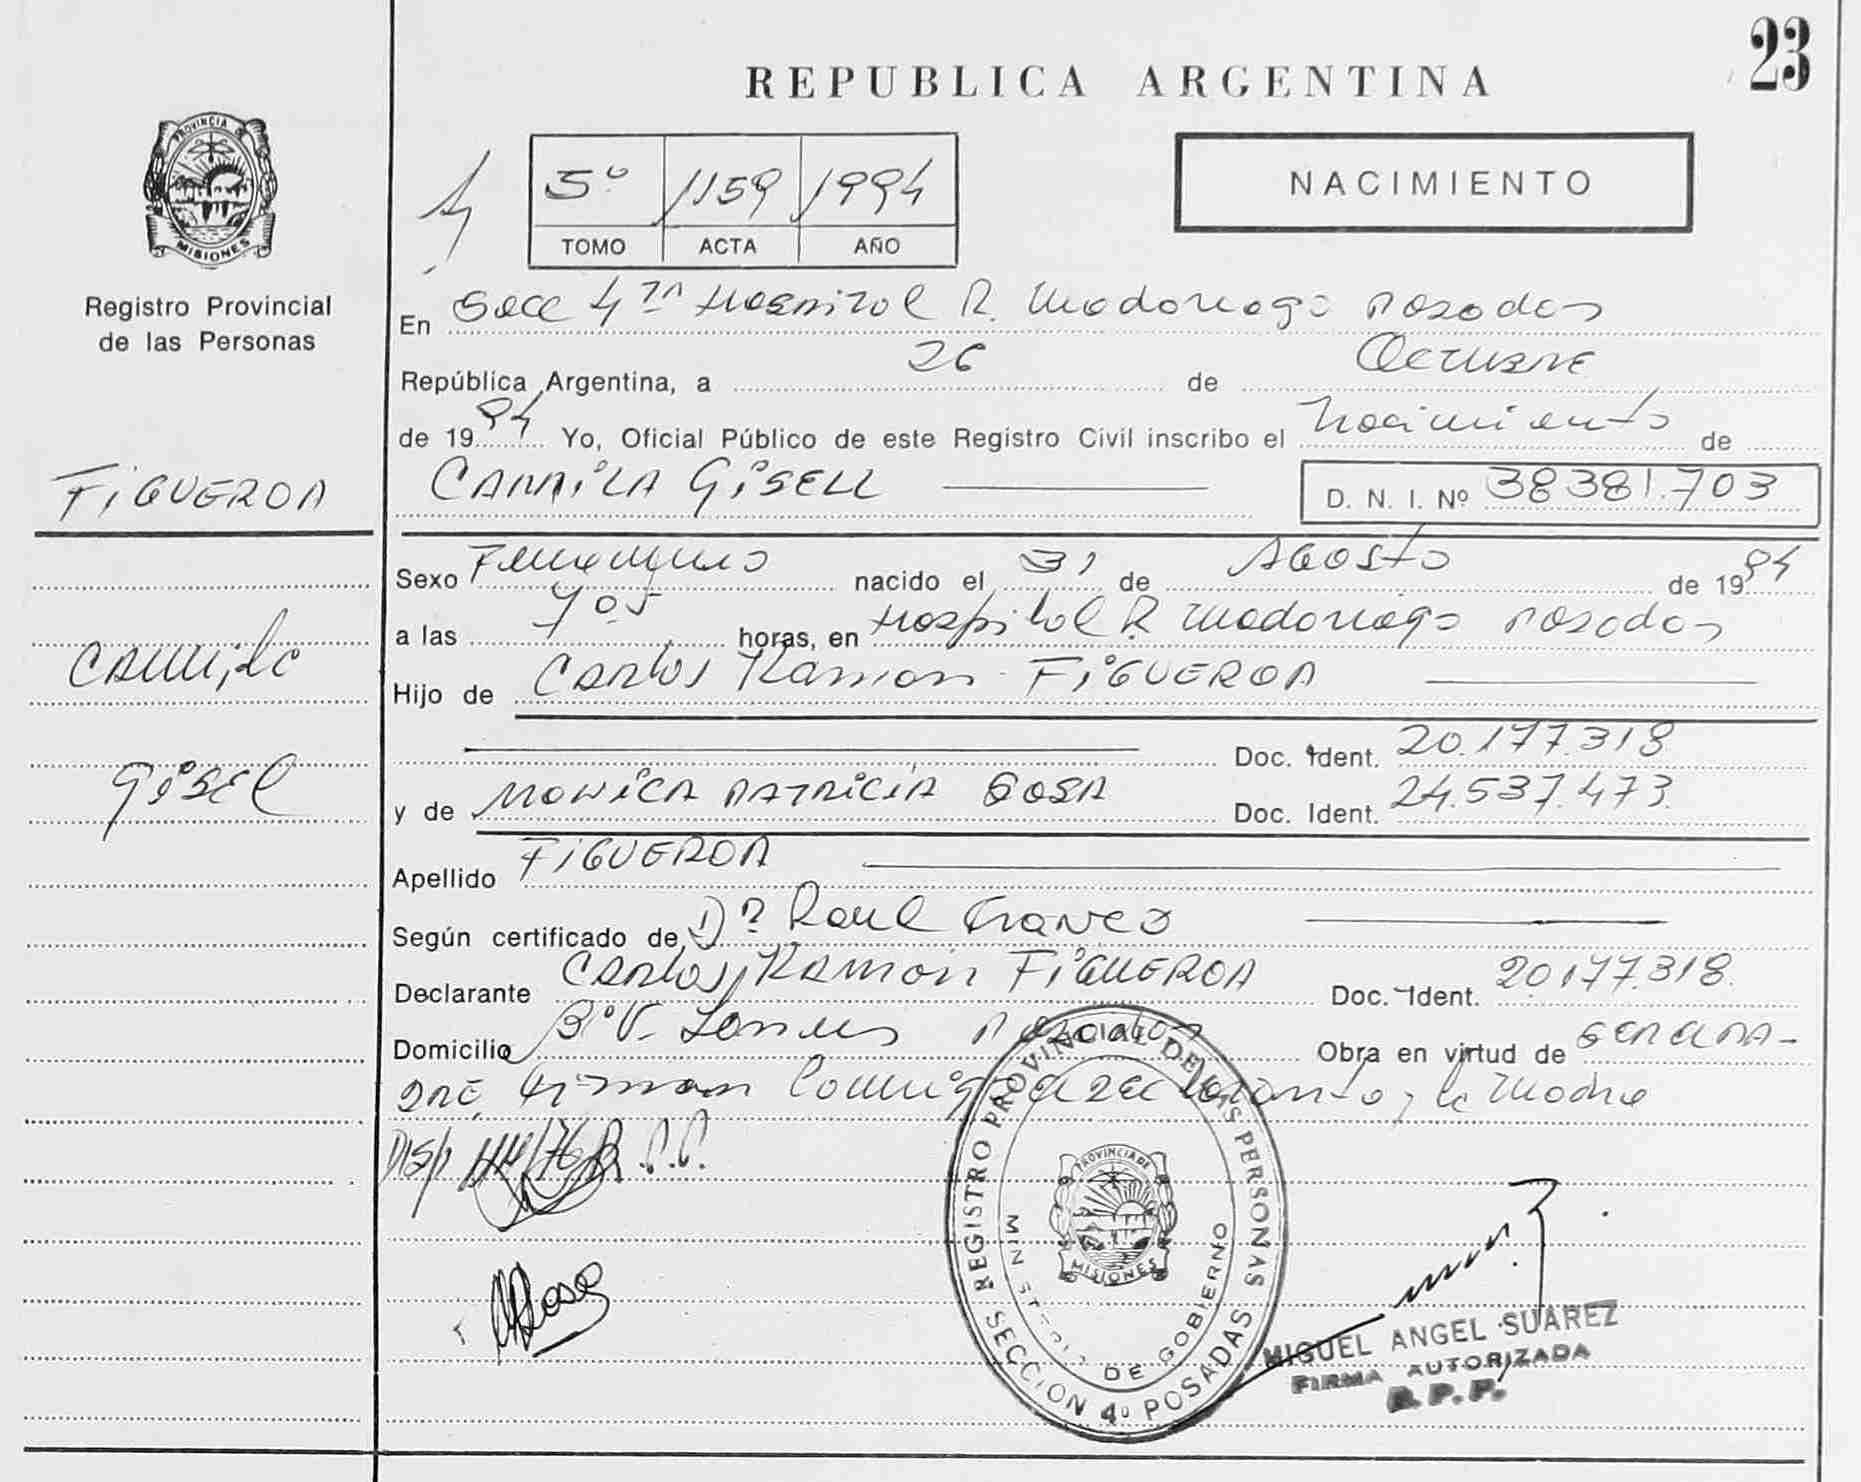 23
REPUBLICA ARGENTINA
PROVINCIA DE
MISIONES
Registro Provincial
de las Personas
5º 1159 1994
TOMO ACTA AÑO
NACIMIENTO
En Secc 4ta Hospital R. Madariaga Posadas
República Argentina, a 26 de Octubre
de 1994 Yo, Oficial Público de este Registro Civil inscribo el Nacimiento de
FIGUEROA
CAMILA GISELL
D. N. I. Nº 38381.703
Sexo Femenino nacido el 31 de Agosto de 1994
a las 705 horas, en Hospital R Madariaga Posadas
Camila
Hijo de Carlos Ramon FIGUEROA
Doc. Ident. 20.177.318
Gisel
y de MONICA PATRICIA SOSA Doc. Ident. 24.537.473.
Apellido FIGUEROA
Según certificado de Dr Raul Chavez
Declarante Carlos Ramon FIGUEROA Doc. Ident. 20177.318.
Domicilio Bº V. Lanus Posadas Obra en virtud de ser el PA-
DRE, Firman Conmigo el declarante y la Madre
Disp. /76 R.P.P.
REGISTRO PROVINCIAL DE LAS PERSONAS
MINISTERIO DE GOBIERNO
PROVINCIA DE
MISIONES
SECCION 4º POSADAS
MIGUEL ANGEL SUAREZ
FIRMA AUTORIZADA
R. P. P.